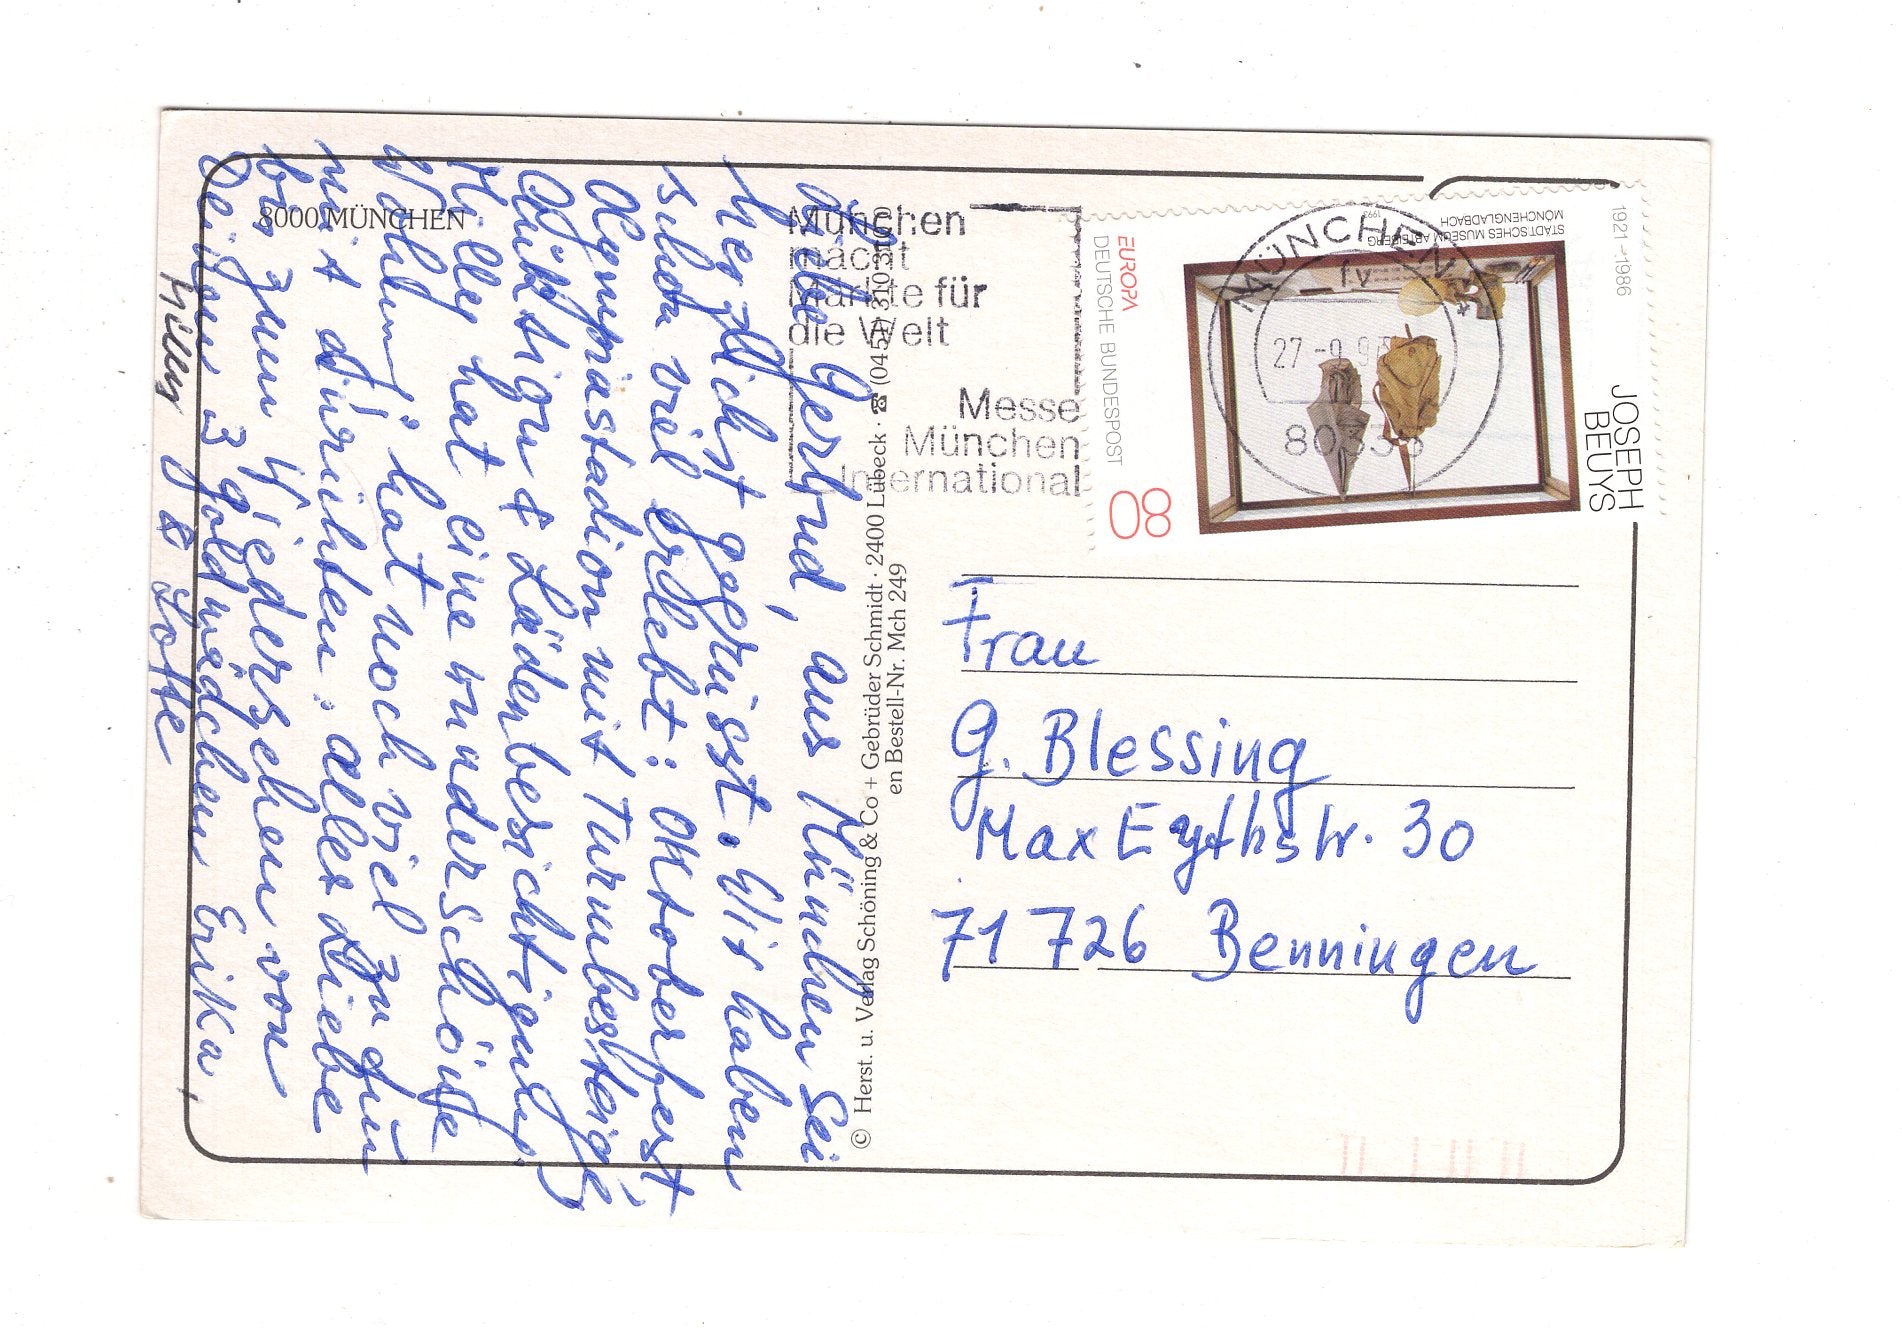 8000 MÜNCHEN
Liebe Gertrud, aus München sei
herzlichst gegrüsst. Wir haben
schon viel erlebt: Oktoberfest
Olympiastadion mit Turmbesteig.
& Läden besichtigung.
Milly hat eine wunderschöne
hat noch viel zu tun
mit dürünten. alles Liebe
bis zum Wiedersehen von
Deinen 3 goldmädchen Erika,
Milly & Lotte
München
macht
Märkte für
die Welt
Messe
München
International
© Herst. u. Verlag Schöning & Co + Gebrüder Schmidt · 2400 Lübeck · ☎ (0451)
en Bestell-Nr. Mch 249
MÜNCHEN
fv
27.-9.93
80335
EUROPA
DEUTSCHE BUNDESPOST
80
STÄDTISCHES MUSEUM ABTEIBERG
MÖNCHENGLADBACH
1993
1921–1986
JOSEPH
BEUYS
Frau
G. Blessing
Max Eythstr. 30
71 726 Benningen